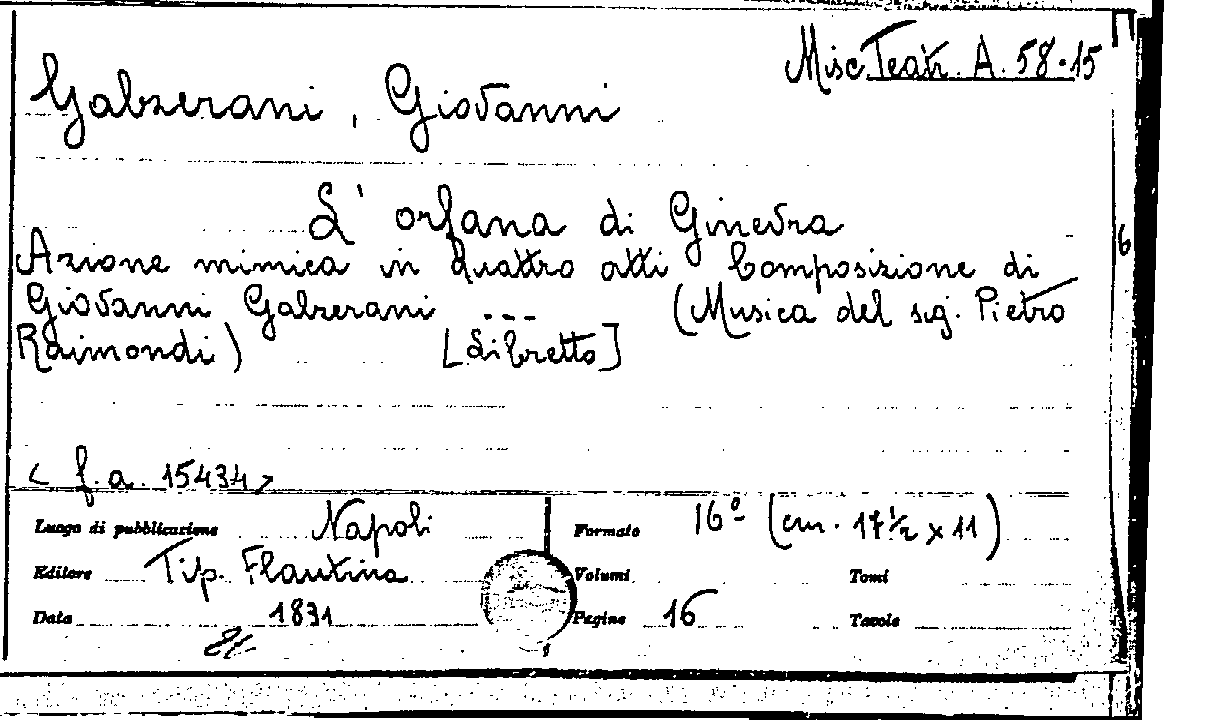 Misc. Teatr. A. 58.15
Galzerani, Giovanni
L' orfana di Ginevra
6
Azione mimica in quattro atti Composizione di
Giovanni Galzerani --- (Musica del sig. Pietro
Raimondi) [Libretto]
< f.a. 15434 >
Luogo di pubblicazione Napoli Formato 16º (cm. 17½ x 11)
Editore Tip. Flautina Volumi Tomi
Data 1831 Pagine 16 Tavole